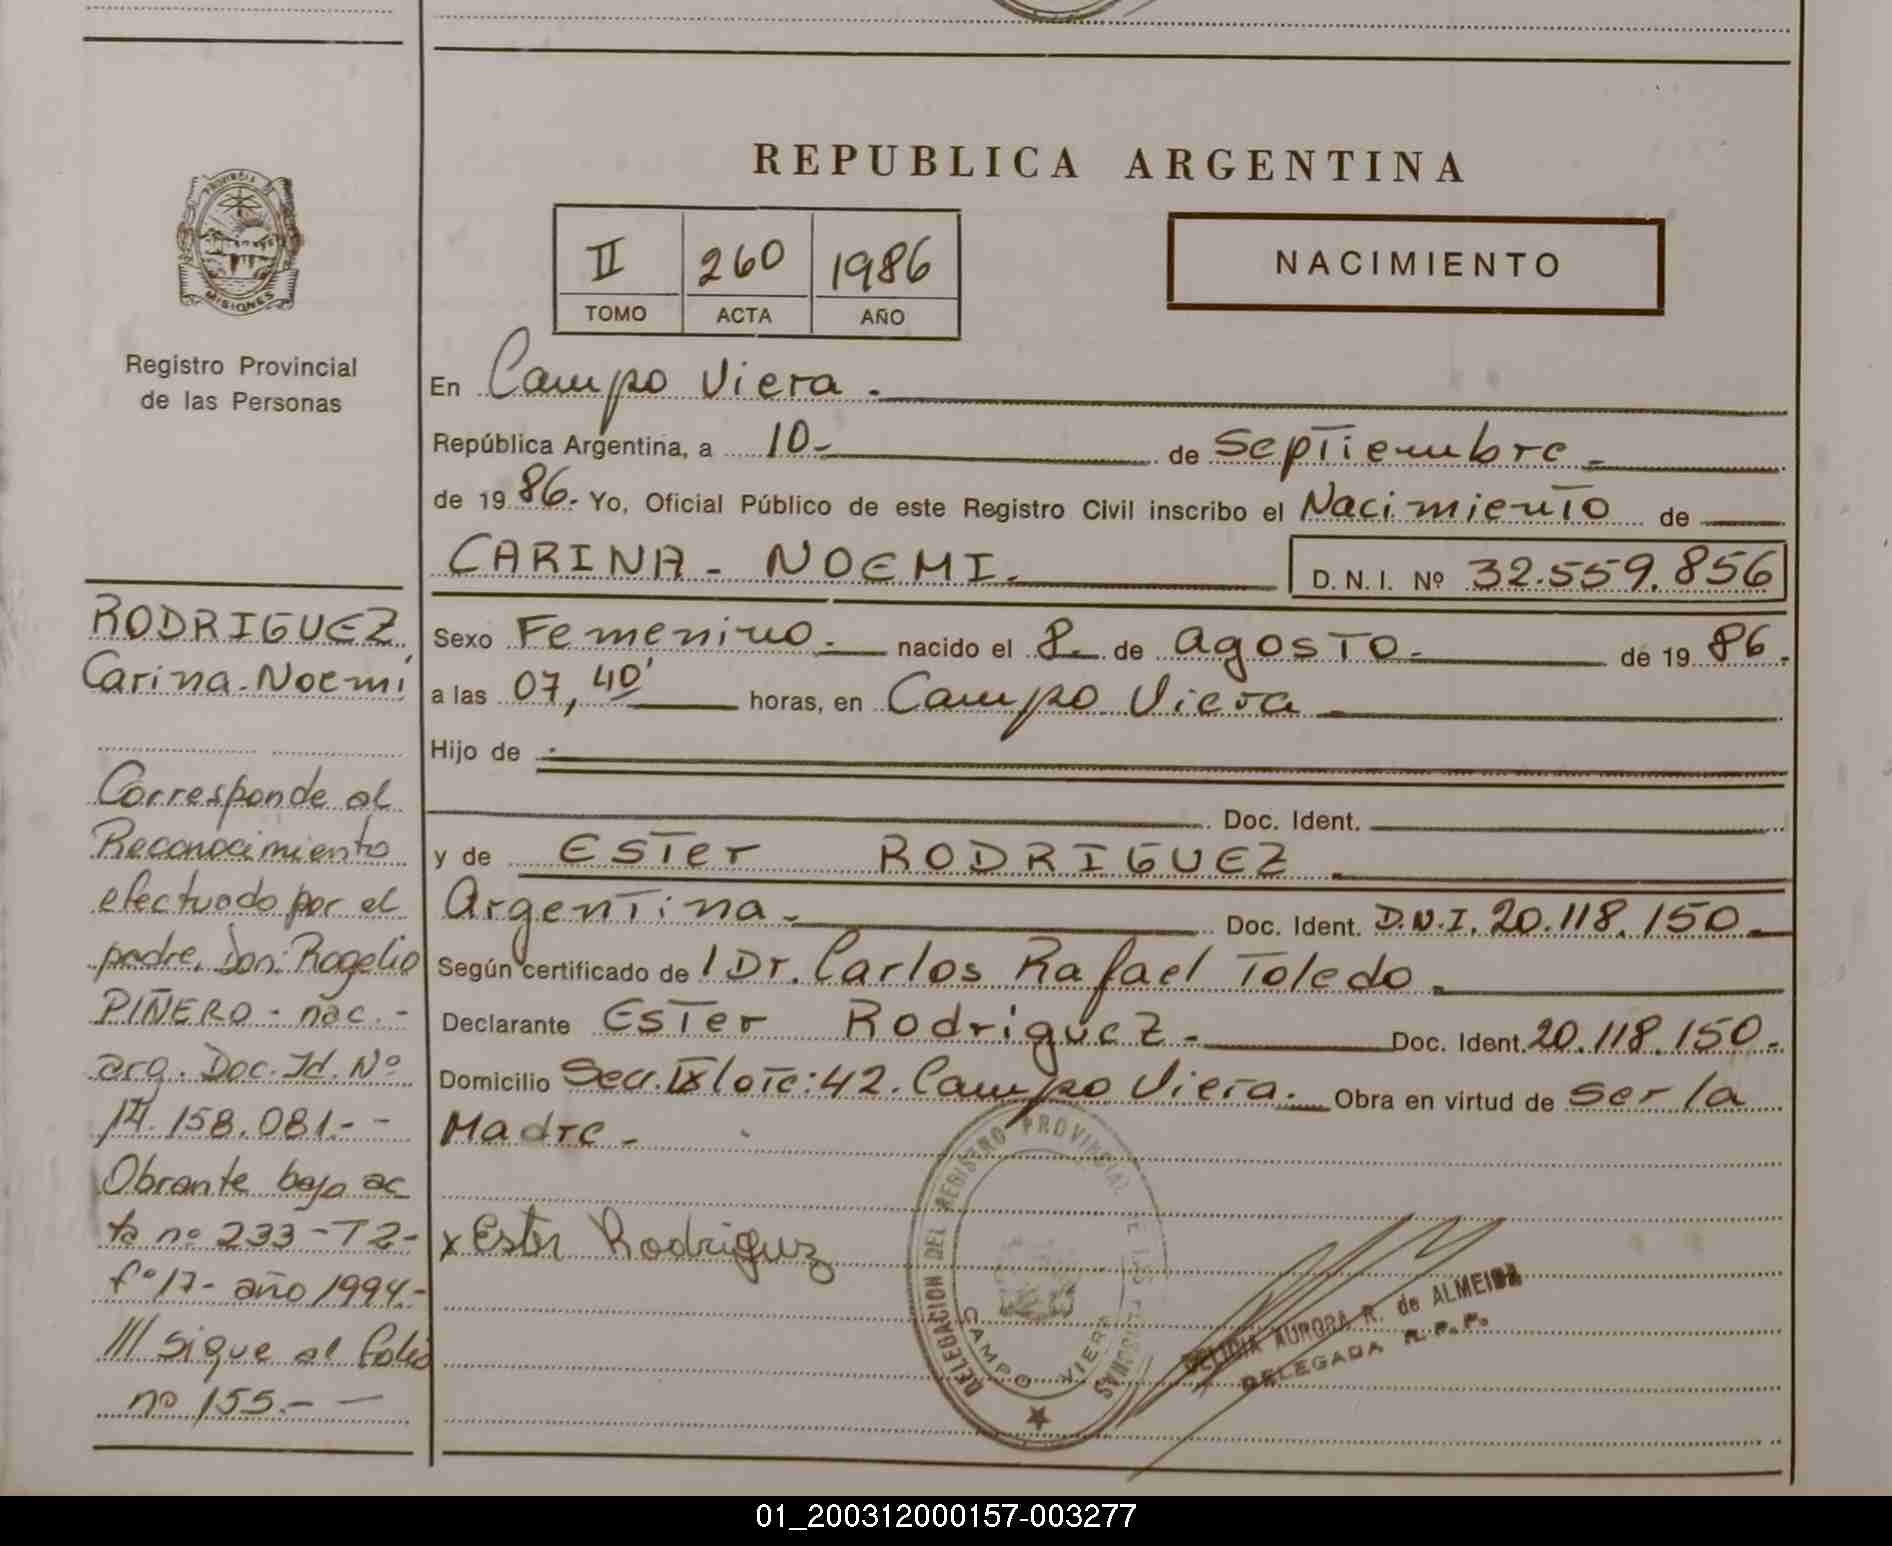 REPUBLICA ARGENTINA
PROVINCIA DE
MISIONES
Registro Provincial
de las Personas
II 260 1986
TOMO ACTA AÑO
NACIMIENTO
En Campo Viera.
República Argentina, a 10- de Septiembre.
de 1986. Yo, Oficial Público de este Registro Civil inscribo el Nacimiento de
CARINA - NOEMI. D. N. I. Nº 32.559.856
Sexo Femenino. nacido el 8. de agosto. de 1986.
a las 07,40' horas, en Campo Viera
Hijo de
Doc. Ident.
y de Ester RODRIGUEZ
Argentina. Doc. Ident. D.N.I. 20.118.150.
Según certificado de / Dr. Carlos Rafael Toledo.
Declarante Ester Rodriguez. Doc. Ident. 20.118.150.
Domicilio Secc. IX lote: 42. Campo Viera. Obra en virtud de ser la
Madre.
x Ester Rodriguez
DELEGACION DEL REGISTRO PROVINCIAL DE LAS PERSONAS
CAMPO VIERA
DELICIA AURORA R. de ALMEIDA
DELEGADA R.P.P.
RODRIGUEZ
Carina.Noemí
Corresponde al
Reconocimiento
efectuado por el
padre, Don: Rogelio
PIÑERO - nac. -
arg. Doc. Id. Nº
14.158.081.- -
Obrante bajo ac
ta nº 233 - T2-
fº 17- año 1994.-
/// sigue al folio
nº 155.- -
01_200312000157-003277